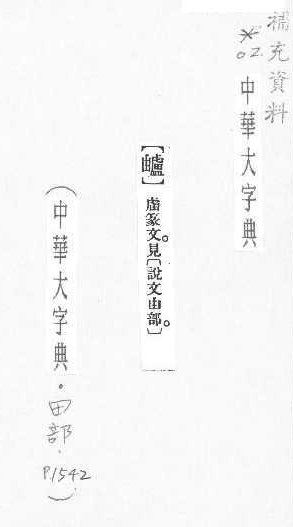 補充資料
※02
中華大字典
【𤮨】盧篆文。見〔說文甾部〕。
(中華大字典.田部.P.1542)